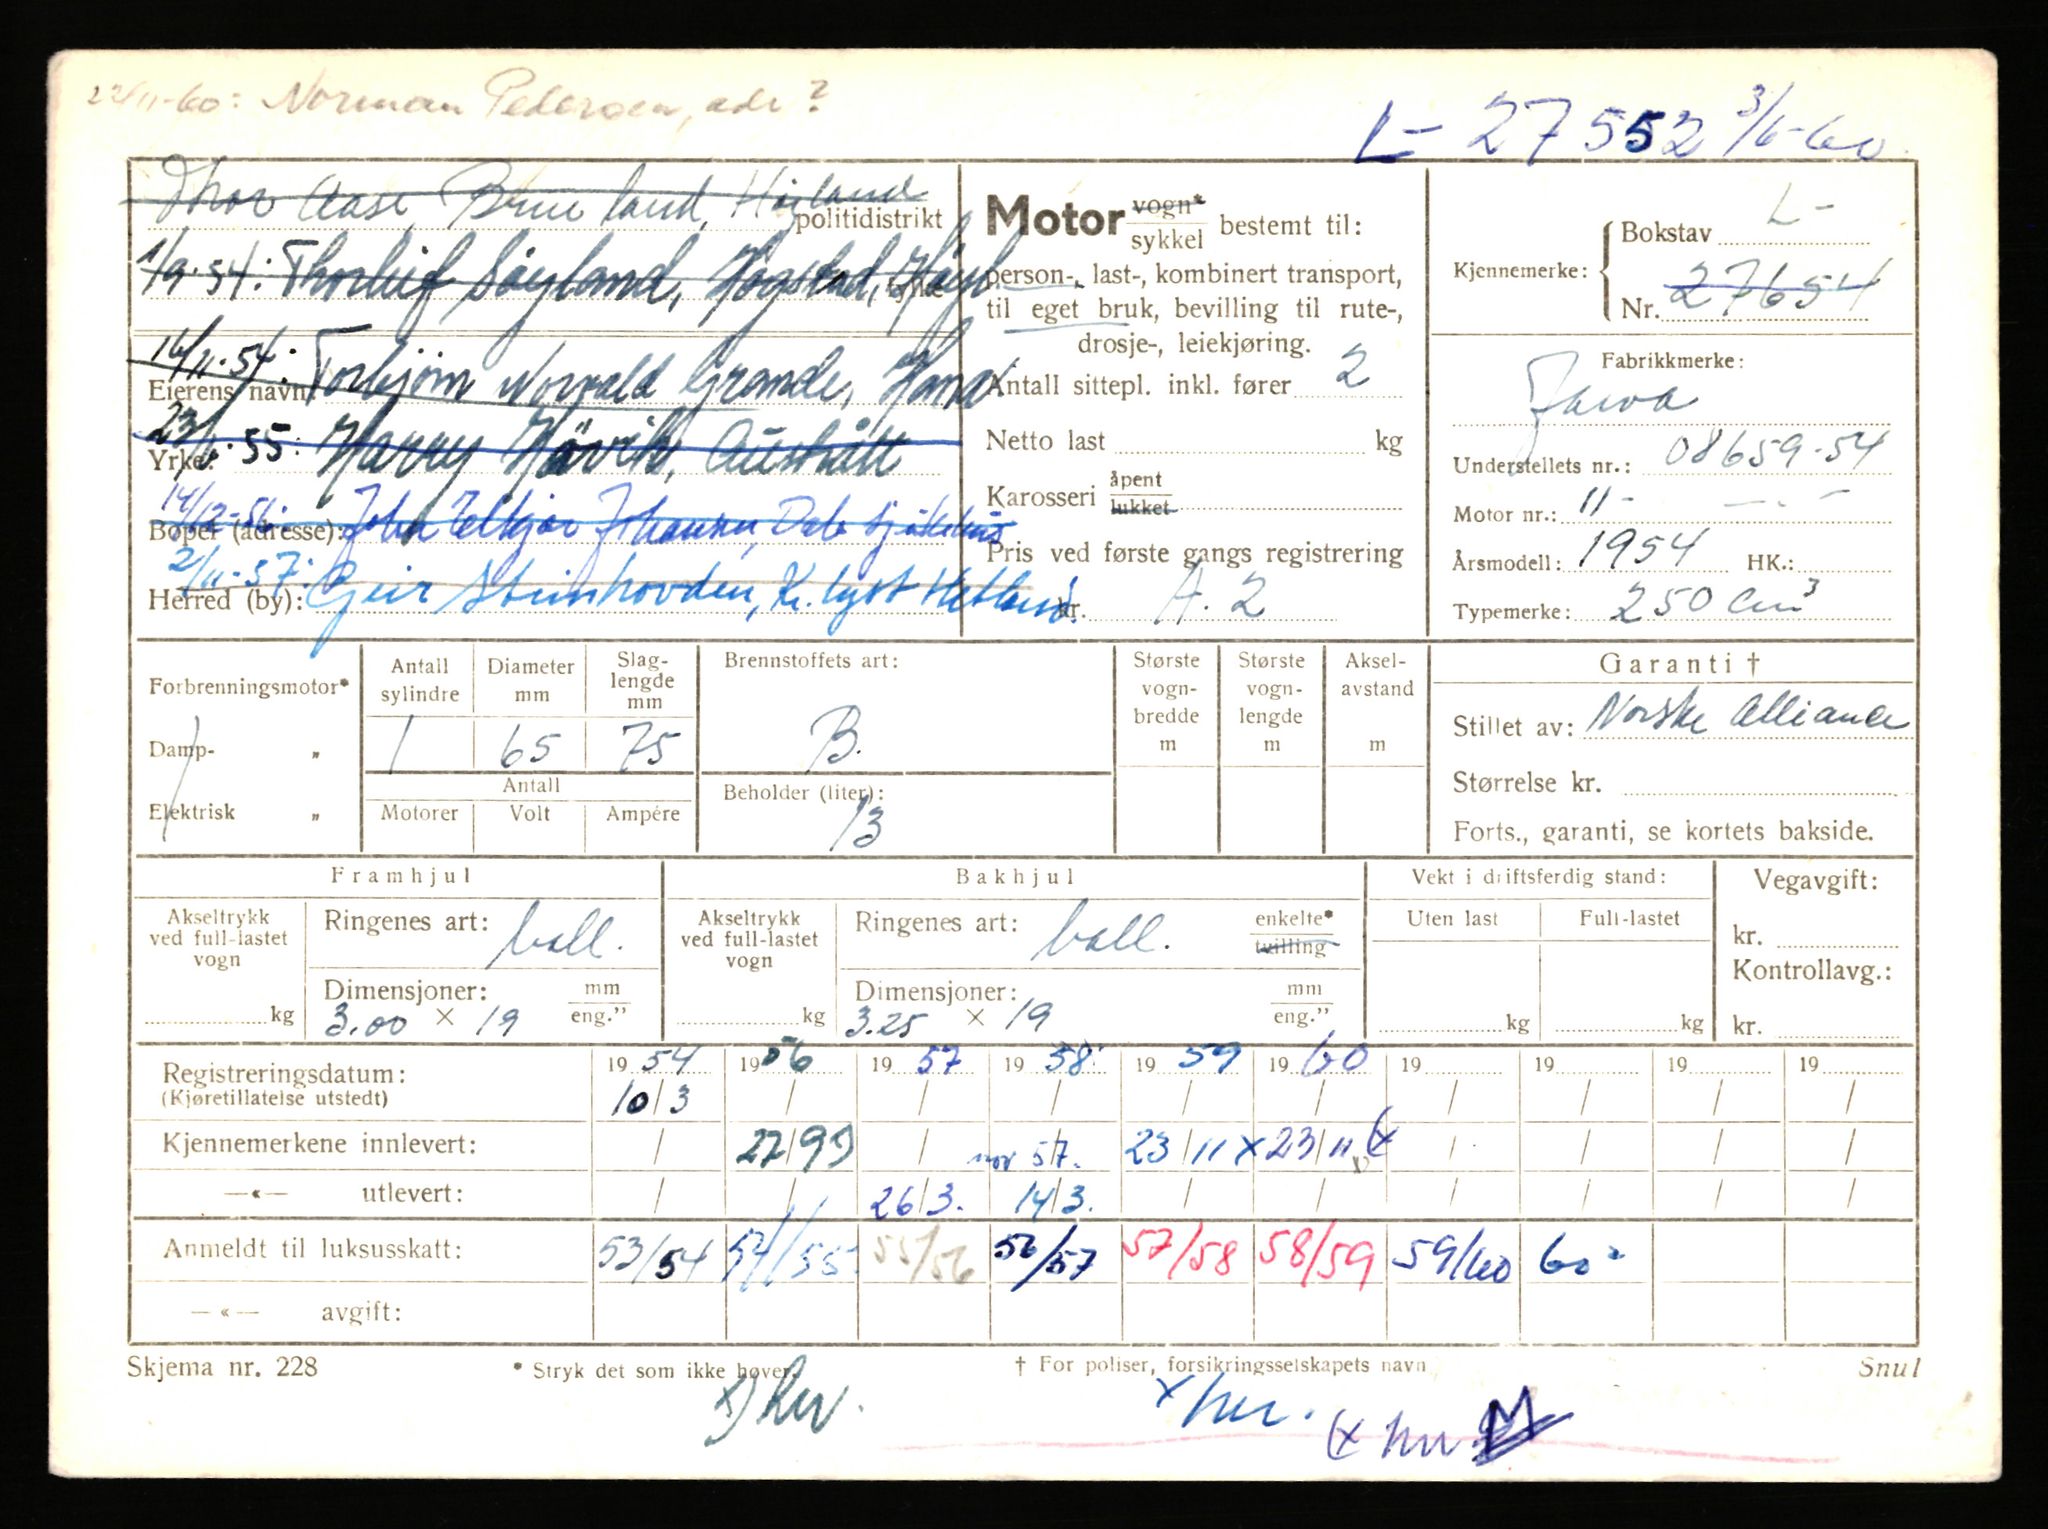 22/11-60: Norman Pedersen, adr?
L- 27552 3/6-60
Thor Aase, Brueland, Høiland
politidistrikt
1/9-54: Thorleif Söyland, Högstad,
14/11-54: Torbjörn Norvald Grande, Hana
Eierens navn:
55: Harry Hövik, Austrått
Yrke:
14/12-56: John Johansen, Dale sjukehus
Bopel (adresse):
2/11-57: Geir Steinhovden, Kr. lyst Hetland
Herred (by):
Motor vogn* sykkel bestemt til:
person-, last-, kombinert transport,
til eget bruk, bevilling til rute-,
drosje-, leiekjøring.
Antall sittepl. inkl. fører 2
Netto last kg
Karosseri åpent lukket
Pris ved første gangs registrering
kr. A. 2
Kjennemerke: Bokstav L-
Nr. 27654
Fabrikkmerke:
Jawa
Understellets nr.: 08659-54
Motor nr.: 11- — - —
Årsmodell: 1954 HK.:
Typemerke: 250 cm3
Forbrenningsmotor*
Damp- „
Elektrisk „
Antall sylindre
Diameter mm
Slag- lengde mm
1 65 75
Antall
Motorer Volt Ampére
Brennstoffets art:
B.
Beholder (liter):
13
Største vogn- bredde m
Største vogn- lengde m
Aksel- avstand m
Garanti †
Stillet av: Norske Alliance
Størrelse kr.
Forts., garanti, se kortets bakside.
Framhjul
Akseltrykk ved full-lastet vogn
kg
Ringenes art: ball.
Dimensjoner: mm eng.”
3.00 × 19
Bakhjul
Akseltrykk ved full-lastet vogn
kg
Ringenes art: ball. enkelte* tvilling
Dimensjoner: mm eng.”
3.25 × 19
Vekt i driftsferdig stand:
Uten last Full-lastet
kg kg
Vegavgift:
kr.
Kontrollavg.:
kr.
Registreringsdatum: 19 54 19 56 19 57 19 58 19 59 19 60 19 19 19 19
(Kjøretillatelse utstedt) 10/3 / / / / / / / / /
Kjennemerkene innlevert: / 27/9 / nov 57. 23/11 x 23/11 (x / / / /
—«— utlevert: / / 26/3. 14/3. / / / / / /
Anmeldt til luksusskatt: 53/54 54/55 55/56 56/57 57/58 58/59 59/60 60-
—«— avgift:
Skjema nr. 228
* Stryk det som ikke høver.
† For poliser, forsikringsselskapets navn.
Snul